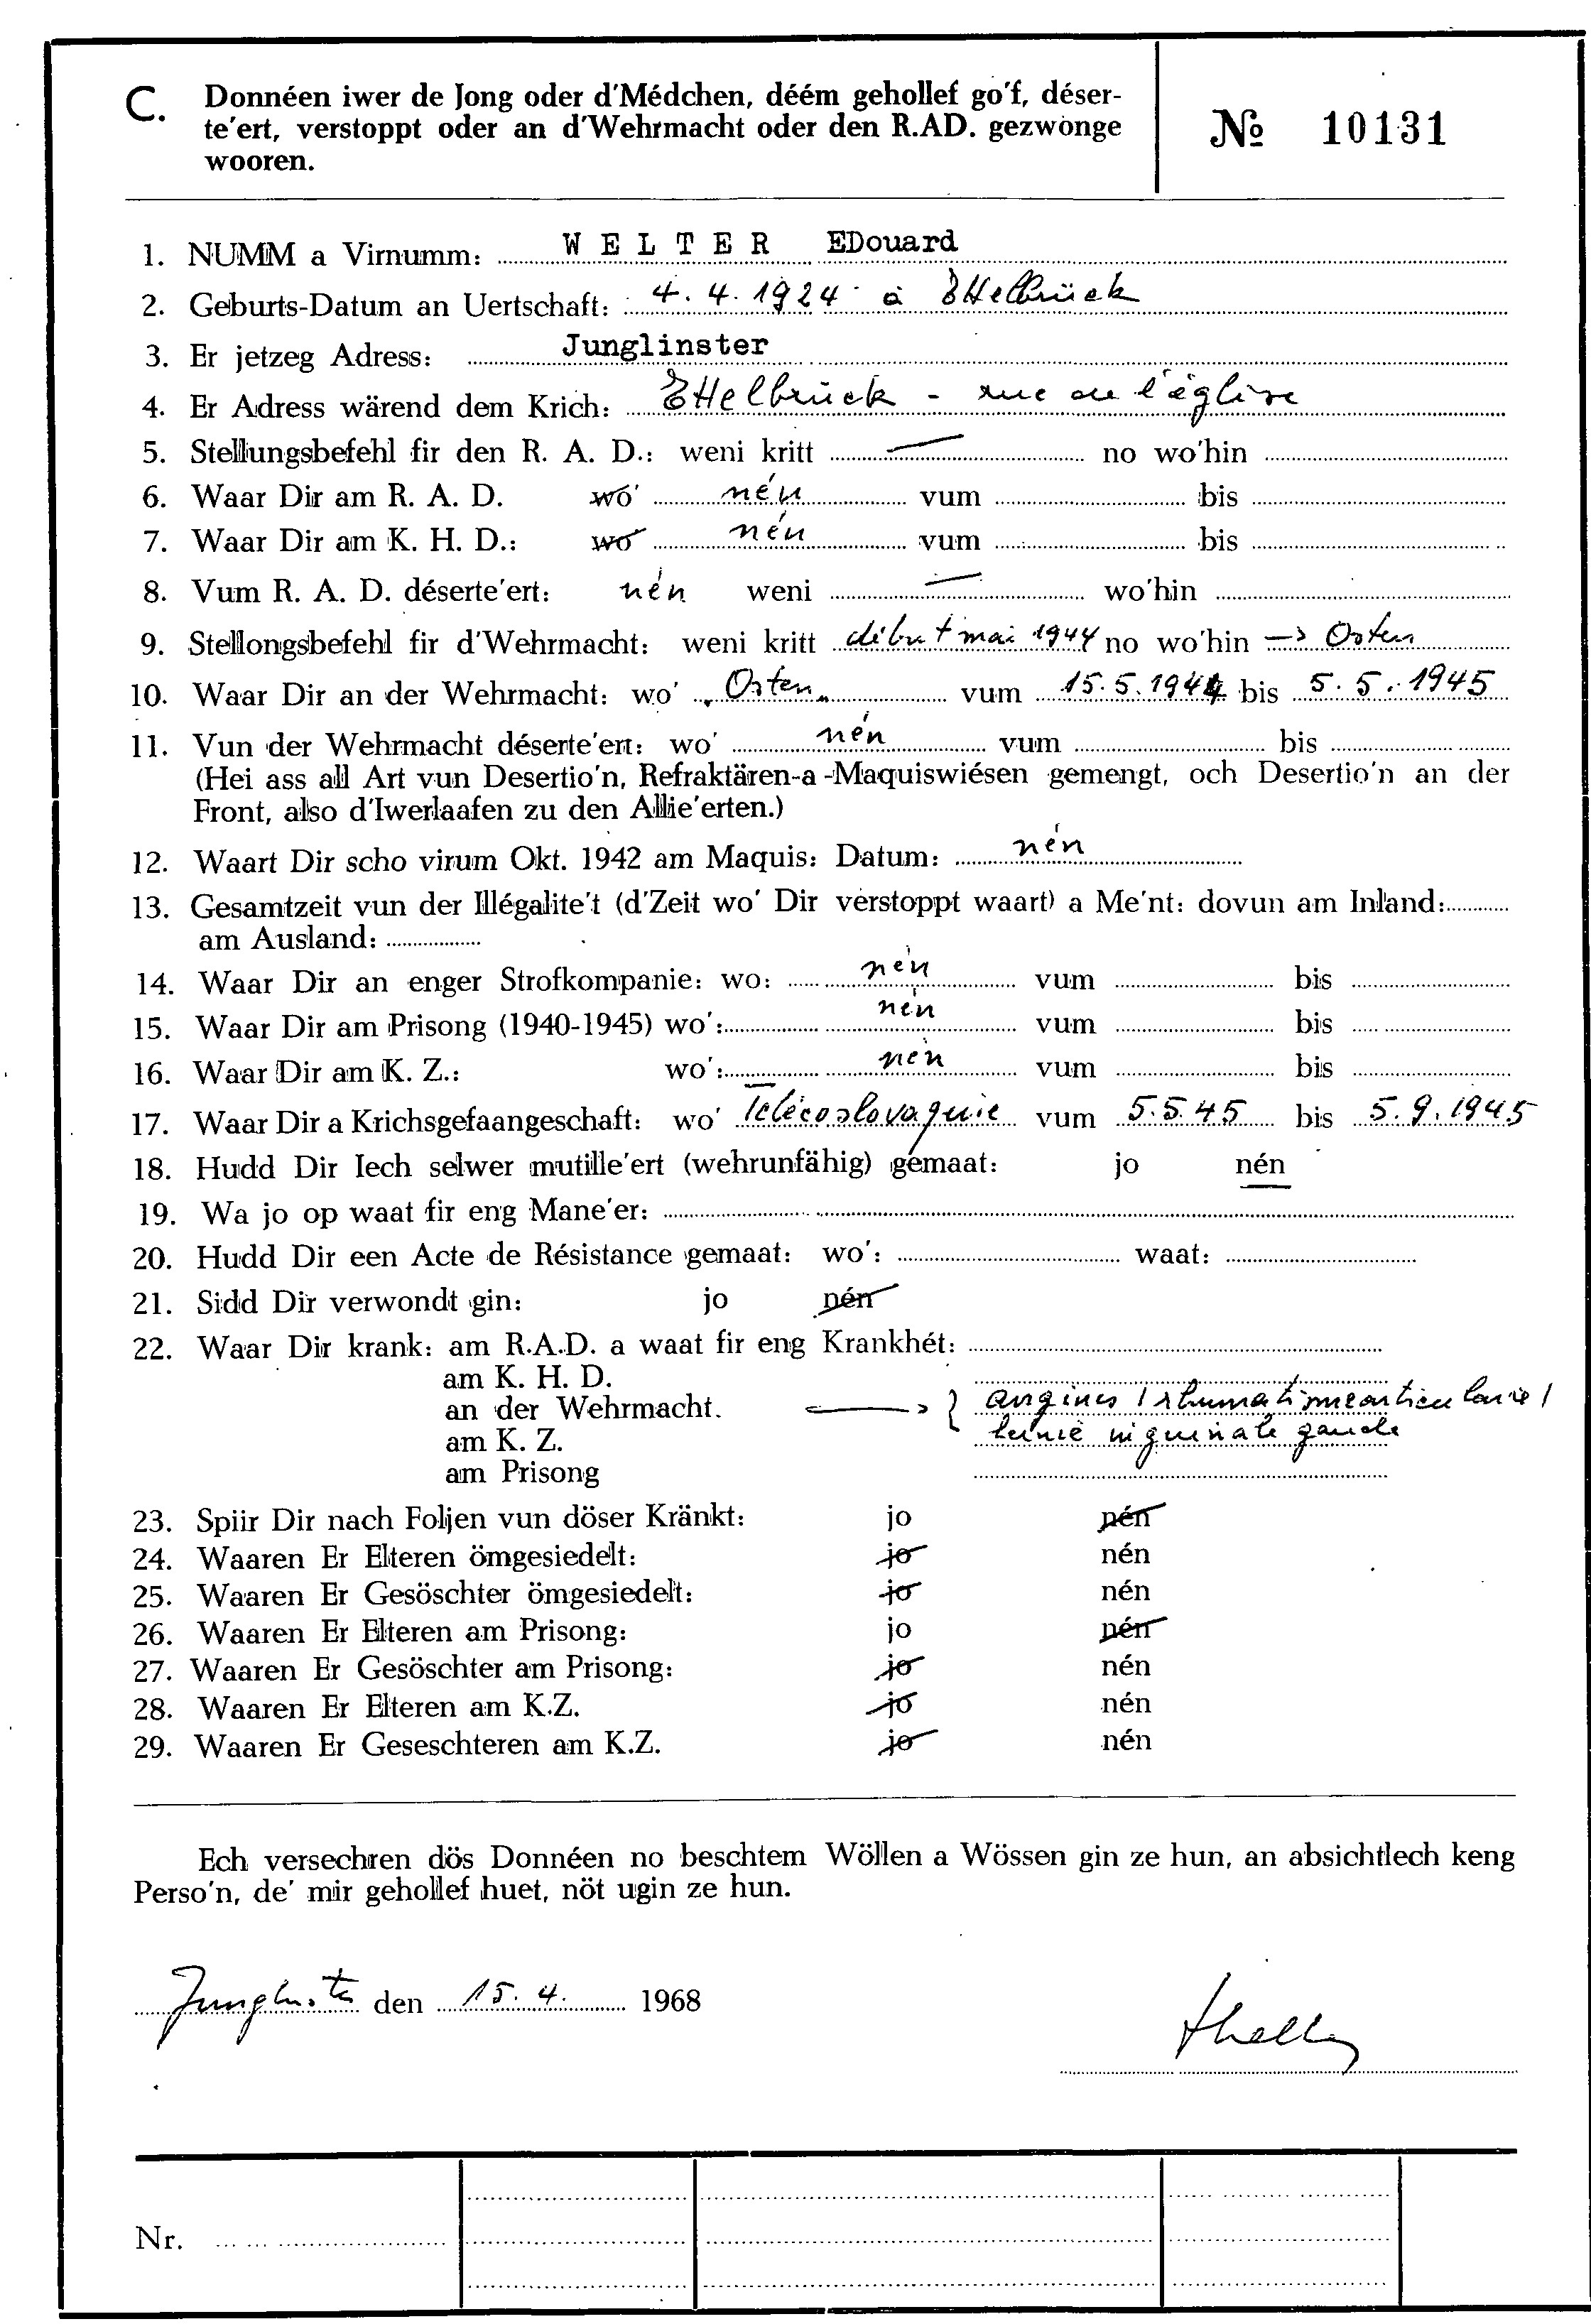 C. Donnéen iwer de Jong oder d'Médchen, déém gehollef go'f, déser-
te'ert, verstoppt oder an d'Wehrmacht oder den R.AD. gezwonge
wooren.
№ 10131
1. NUMM a Virnumm: WELTER EDouard
2. Geburts-Datum an Uertschaft: 4.4.1924 à Ettelbrück
3. Er jetzeg Adress: Junglinster
4. Er Adress wärend dem Krich: Ettelbrück - rue de l'église
5. Stellungsbefehl fir den R. A. D.: weni kritt — no wo'hin
6. Waar Dir am R. A. D. wo' nén vum bis
7. Waar Dir am K. H. D.: wo' nén vum bis
8. Vum R. A. D. déserte'ert: nén weni — wo'hin
9. Stellongsbefehl fir d'Wehrmacht: weni kritt début mai 1944 no wo'hin → Osten
10. Waar Dir an der Wehrmacht: wo' „Osten" vum 15.5.1944 bis 5.5.1945
11. Vun der Wehrmacht déserte'ert: wo' nén vum bis
(Hei ass all Art vun Desertio'n, Refraktären-a-Maquiswiésen gemengt, och Desertio'n an der
Front, also d'Iwerlaafen zu den Allie'erten.)
12. Waart Dir scho virum Okt. 1942 am Maquis: Datum: nén
13. Gesamtzeit vun der Illégalite't (d'Zeit wo' Dir verstoppt waart) a Me'nt: dovun am Inland:
am Ausland:
14. Waar Dir an enger Strofkompanie: wo: nén vum bis
15. Waar Dir am Prisong (1940-1945) wo': nén vum bis
16. Waar Dir am K. Z.: wo': nén vum bis
17. Waar Dir a Krichsgefaangeschaft: wo' Tchécoslovaquie vum 5.5.45 bis 5.9.1945
18. Hudd Dir Iech selwer mutille'ert (wehrunfähig) gemaat: jo nén
19. Wa jo op waat fir eng Mane'er:
20. Hudd Dir een Acte de Résistance gemaat: wo': waat:
21. Sidd Dir verwondt gin: jo nén
22. Waar Dir krank: am R.A.D. a waat fir eng Krankhét:
am K. H. D.
an der Wehrmacht. → { angines / rhumatisme articulaire /
am K. Z. hernie inguinale gauche
am Prisong
23. Spiir Dir nach Foljen vun döser Kränkt: jo nén
24. Waaren Er Elteren ömgesiedelt: jo nén
25. Waaren Er Gesöschter ömgesiedelt: jo nén
26. Waaren Er Elteren am Prisong: jo nén
27. Waaren Er Gesöschter am Prisong: jo nén
28. Waaren Er Elteren am K.Z. jo nén
29. Waaren Er Geseschteren am K.Z. jo nén
Ech versechren dös Donnéen no beschtem Wöllen a Wössen gin ze hun, an absichtlech keng
Perso'n, de' mir gehollef huet, nöt ugin ze hun.
Junglinster den 15.4. 1968
Nr.